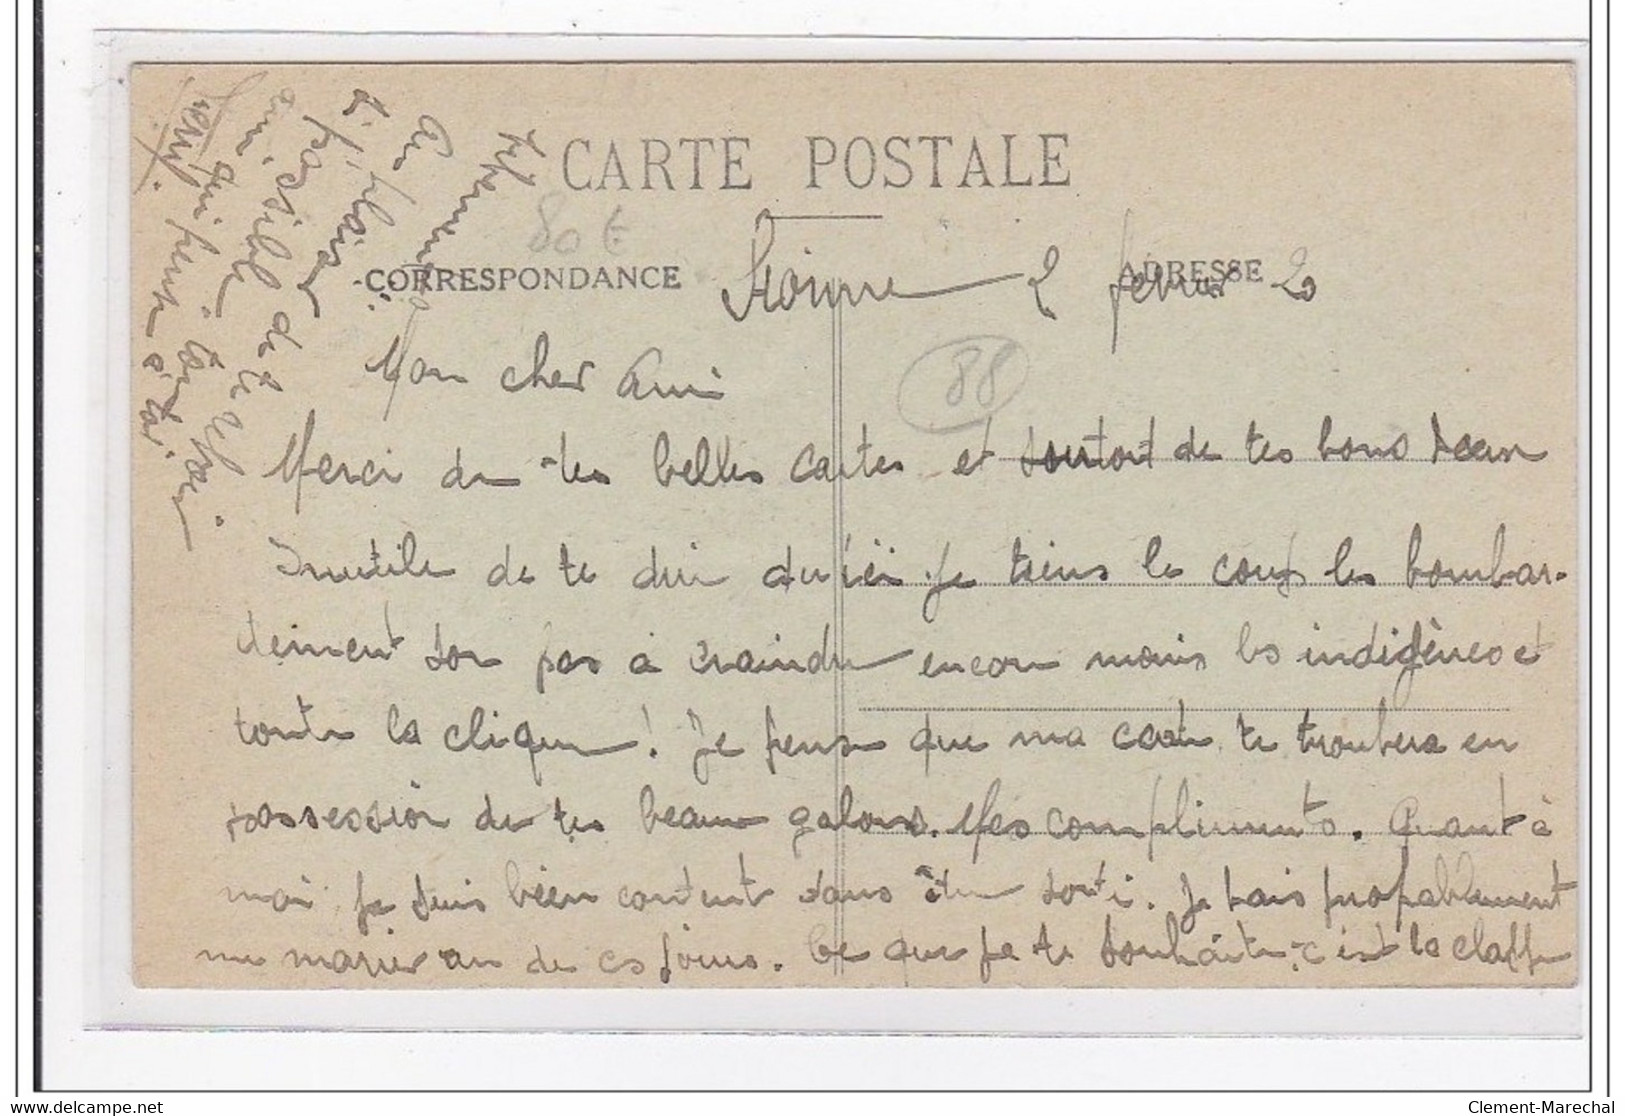 CARTE POSTALE
80 €
CORRESPONDANCE
ADRESSE
2 fevrier 20
88
Mon cher Ami
Merci de tes belles cartes et surtout de tes bons
Inutile de te dire du je tiens le coup les bombar-
dement son pas à craindre encore moins les indigènes et
toute la clique ! Je pense que ma carte te troubera en
possession de tes beaux galons. Mes compliments. Quant à
moi je suis bien content dans être sorti. Je vais probablement
me marier un de ces jours. Ce que je te souhaite, c'est la classe
au plaisir
possible de te voir.
ami qui pense à toi
delcampe.net
Clement-Marechal